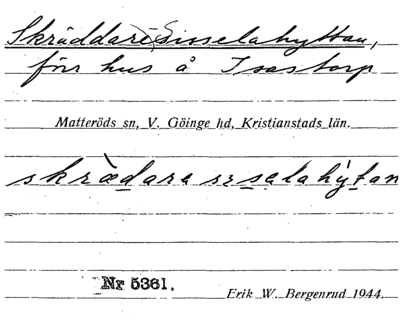 Skräddare Sisselahyttan,
förr hus å Isastorp
Matteröds sn, V. Göinge hd, Kristianstads län.
skrædara sɪselahy̍tan
Nr 5361.
Erik W. Bergenrud 1944.